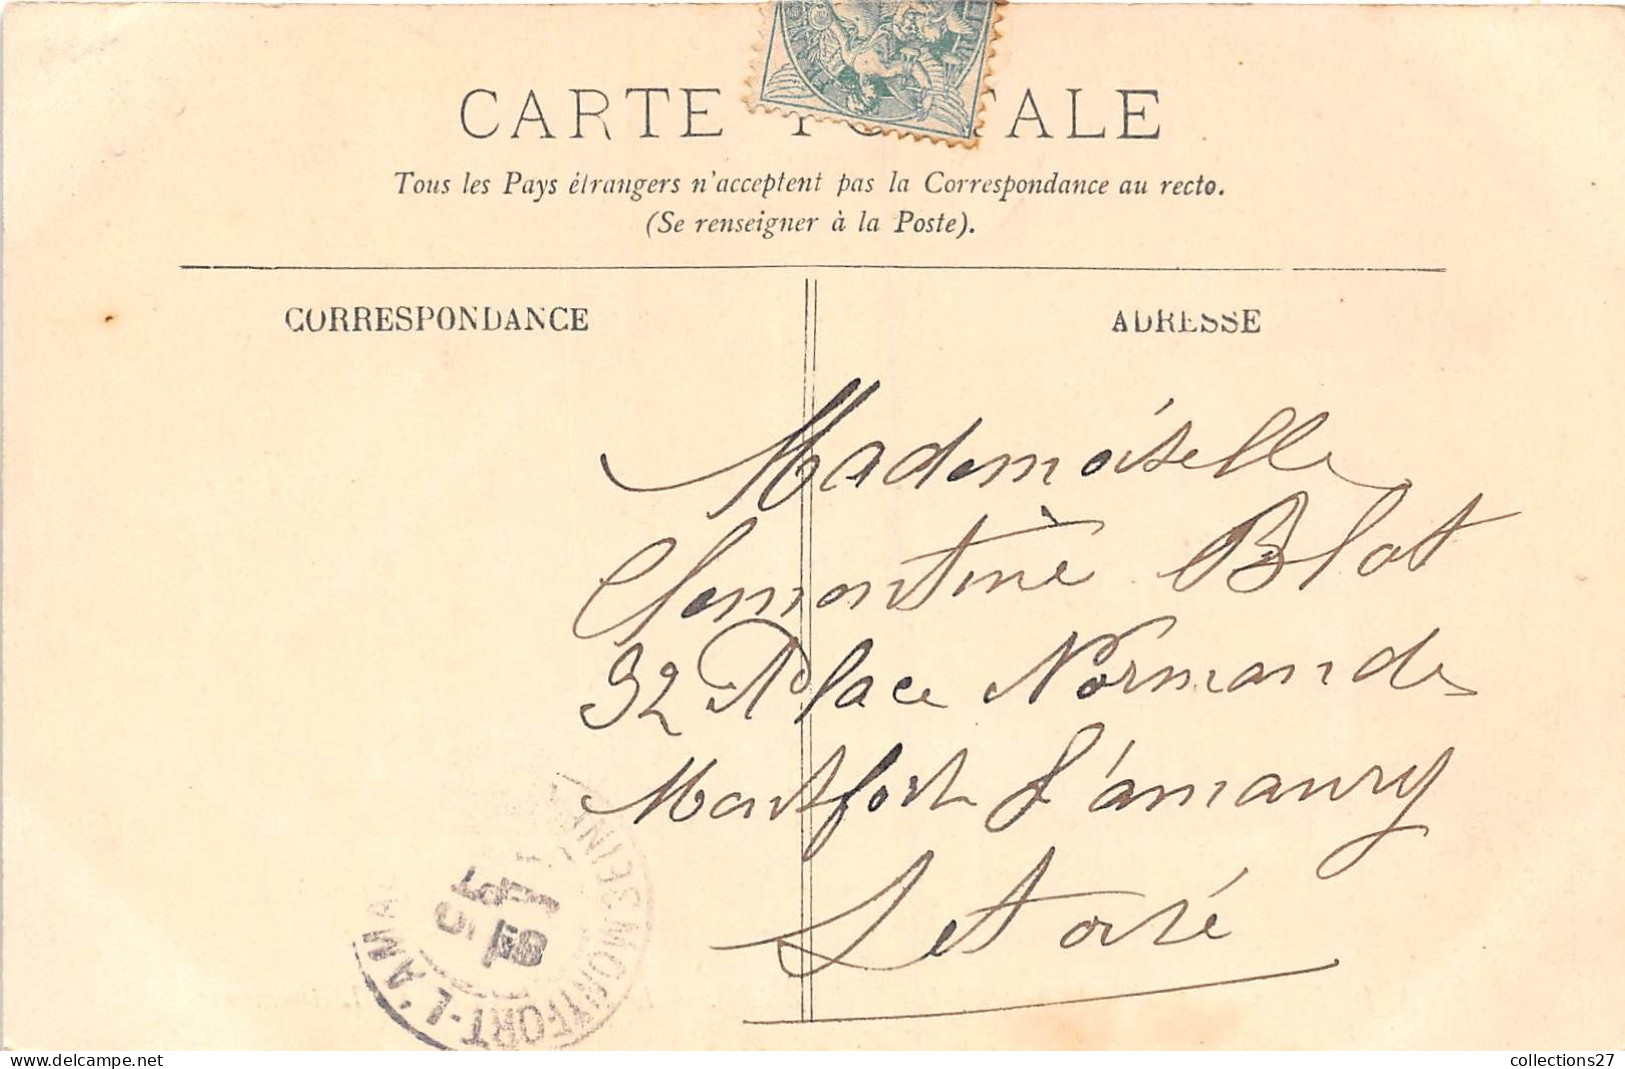 CARTE POSTALE
Tous les Pays étrangers n'acceptent pas la Correspondance au recto.
(Se renseigner à la Poste).
CORRESPONDANCE
ADRESSE
Mademoiselle
Clemontine Blot
32 Place Normande
Montfort L'amaury
Set oisé
MONTFORT-L'AMA
collections27